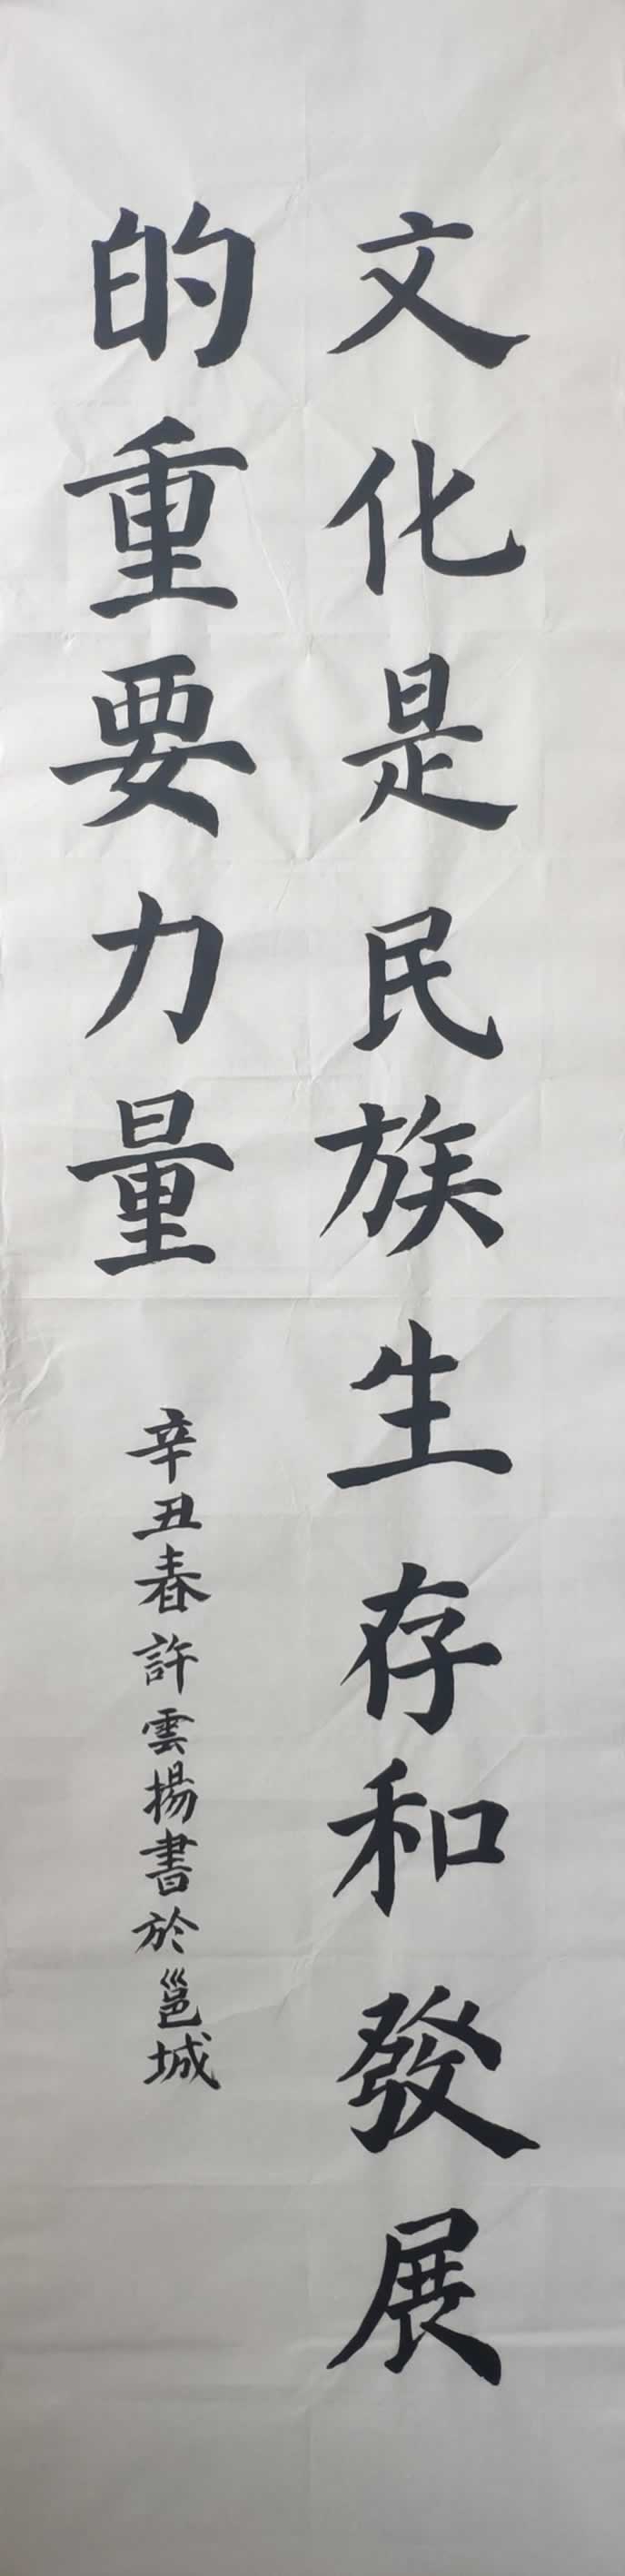 文化是民族生存和發展
的重要力量
辛丑春許雲揚書於邕城